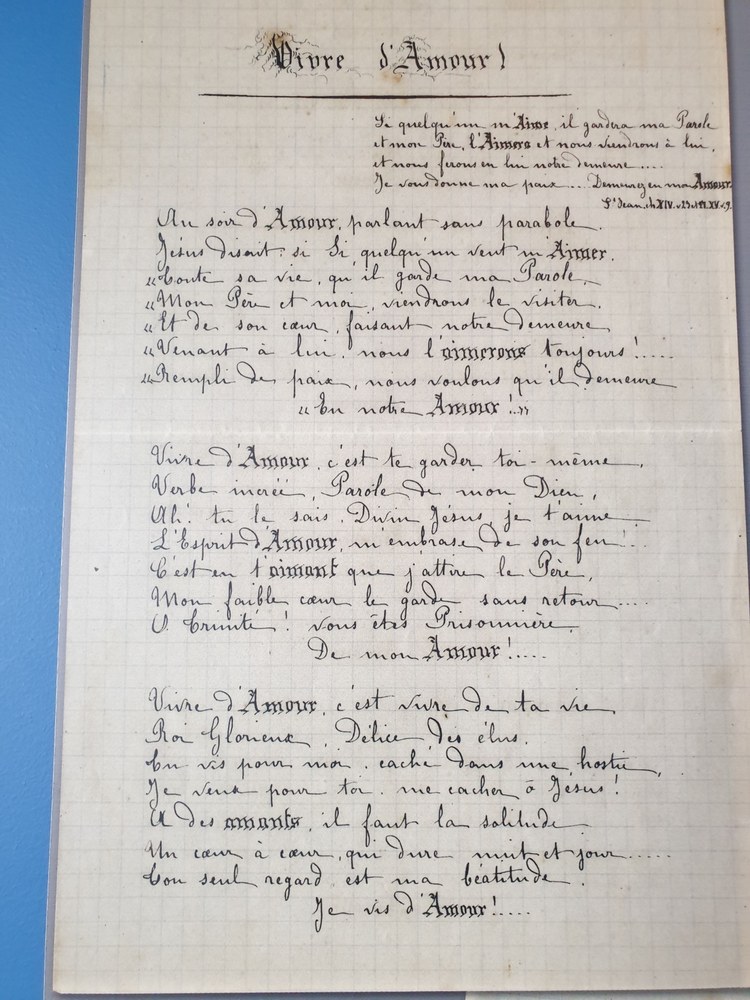 Vivre d'Amour!
Si quelqu'un m'Aime, il gardera ma Parole
et mon Père, l'Aimera et nous viendrons à lui,
et nous ferons en lui notre demeure....
Je vous donne ma paix.... Demeurez en mon Amour.
St Jean, ch XIV. v 23. XV. v. 9.
Au soir d'Amour, parlant sans parabole
Jésus disait: si Si quelqu'un veut m'Aimer.
"Toute sa vie, qu'il garde ma Parole
"Mon Père et moi, viendrons le visiter.
"Et de son cœur, faisant notre demeure
"Venant à lui, nous l'aimerons toujours!....
"Rempli de paix, nous voulons qu'il demeure
"En notre Amour!.."
Vivre d'Amour, c'est te garder toi-même,
Verbe increé, Parole de mon Dieu,
Ah! tu le sais, Divin Jésus, je t'aime
L'Esprit d'Amour, m'embrase de son feu!...
C'est en t'aimant que j'attire le Père,
Mon faible cœur le garde sans retour....
O Trinité! vous êtes Prisonnière
De mon Amour!....
Vivre d'Amour, c'est vivre de ta vie
Roi Glorieux, Délice des élus.
Tu vis pour moi, caché dans une hostie,
Je veux pour toi, me cacher ô Jésus!
A des amants, il faut la solitude
Un cœur à cœur, qui dure nuit et jour.....
Ton seul regard est ma béatitude.
Je vis d'Amour!....